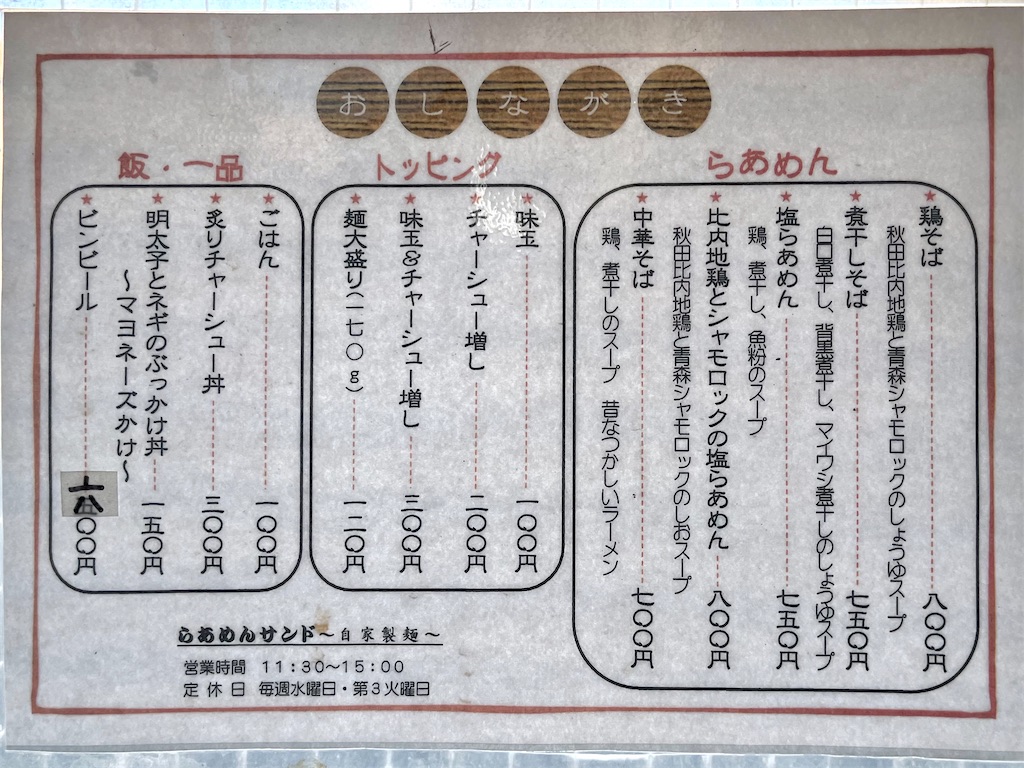 おしながき
らあめん
★鶏そば 八〇〇円
秋田比内地鶏と青森シャモロックのしょうゆスープ
★煮干しそば 七五〇円
白口煮干し、背黒煮干し、マイワシ煮干しのしょうゆスープ
★塩らあめん 七五〇円
鶏、煮干し、魚粉のスープ
★比内地鶏とシャモロックの塩らあめん 八〇〇円
秋田比内地鶏と青森シャモロックのしおスープ
★中華そば 七〇〇円
鶏、煮干しのスープ 昔なつかしいラーメン
トッピング
★味玉 一〇〇円
★チャーシュー増し 二〇〇円
★味玉&チャーシュー増し 三〇〇円
★麺大盛り(一七〇g) 一二〇円
飯・一品
★ごはん 一〇〇円
★炙りチャーシュー丼 三〇〇円
★明太子とネギのぶっかけ丼 一五〇円
～マヨネーズかけ～
★ビンビール 六〇〇円
らあめんサンド～自家製麺～
営業時間 11:30～15:00
定休日 毎週水曜日・第3火曜日